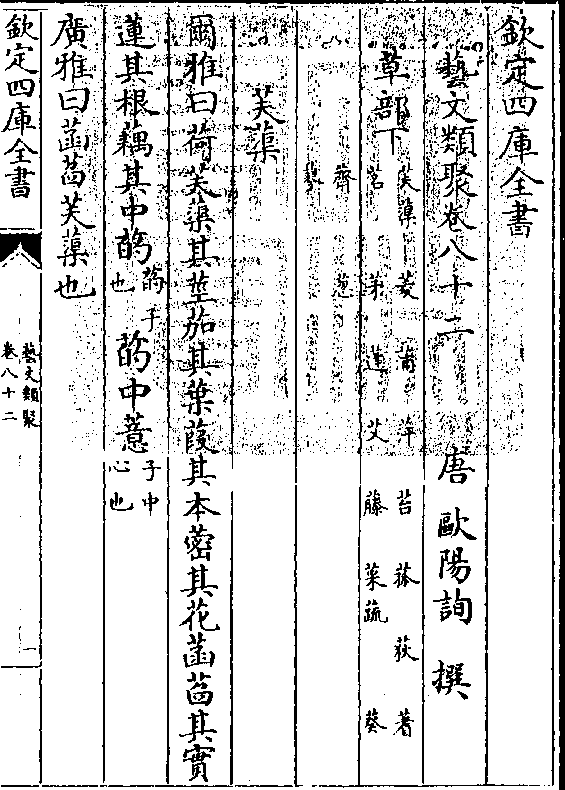 欽定四庫全書
藝文類聚卷八十二 唐 歐陽詢 撰
草部下 芙蕖 菱 蒲 萍 苔 菻 荻 蓍
茗 茅 蓮 艾 藤 菜蔬 葵
薺 葱
蓼
芙蕖
爾雅曰荷芙蕖其莖茄其葉葭其本蔤其花菡萏其實
蓮其根藕其中菂菂子也菂中薏子中心也
廣雅曰菡萏芙蕖也
欽定四庫全書
藝文類聚
卷八十二
一